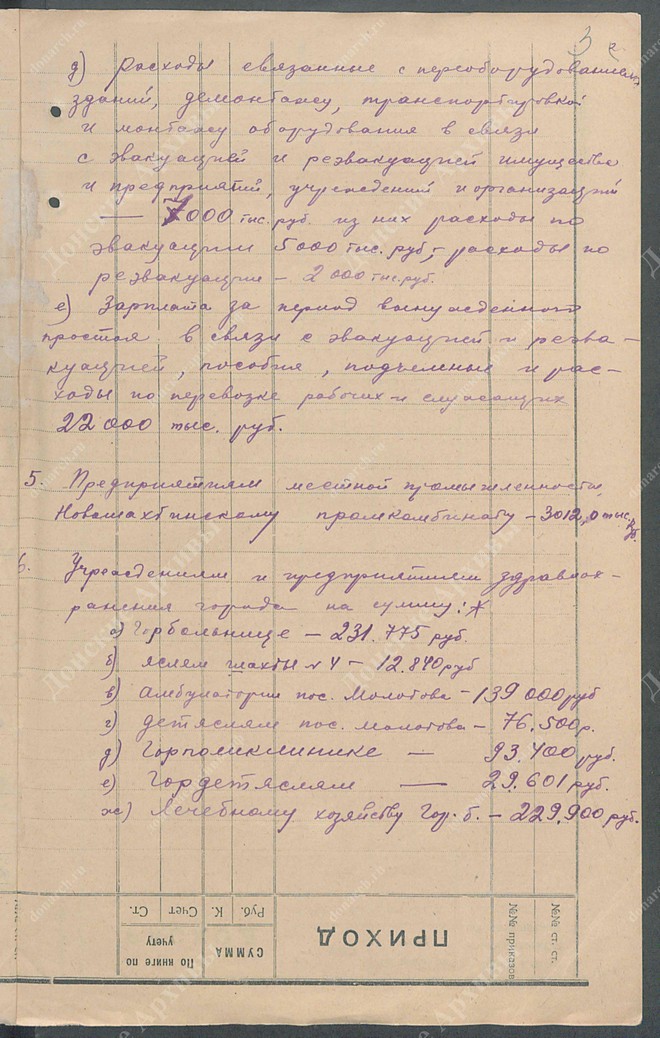 3
д) Расходы связанные с переоборудованием
зданий, демонтажу, транспортировкой
и монтажу оборудования в связи
с эвакуацией и реэвакуацией имущества
и предприятий, учреждений и организаций
— 7000 тыс. руб. из них расходы по
эвакуации 5000 тыс. руб, расходы по
реэвакуации – 2000 тыс. руб.
е) Зарплата за период вынужденного
простоя в связи с эвакуацией и реэва-
куацией, пособия, подъемные и рас-
ходы по перевозке рабочих и служащих
22000 тыс. руб.
5. Предприятиям местной промышленности,
Новошахтинскому промкомбинату – 3012,0 тыс. руб.
6. Учреждениям и предприятиям здравоох-
ранения города на сумму:
а) Горбольнице – 231.775 руб.
б) яслям шахты №4 – 12.840 руб
в) Амбулатории пос. Молотова – 139000 руб
г) детяслям пос. Молотова – 76.500 р.
д) Горполиклинике — 93.400 руб.
е) Гордетяслям — 29.601 руб.
ж) Лечебному хозяйству Гор. б. – 229.900 руб.
№№ ст. ст.
№№ приказов
ПРИХОД
СУММА
Руб. К.
По книге по учету
Счет Ст.